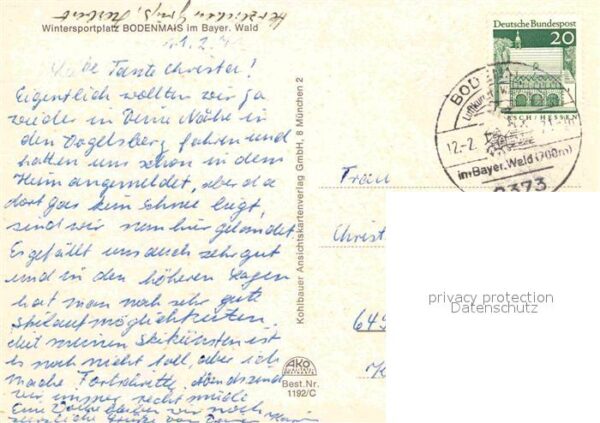 Herzlichen Gruß, Herbert
Wintersportplatz BODENMAIS im Bayer. Wald
Liebe Tante Christa!
Eigentlich wollten wir ja
wieder in Deine Nähe in
den Vogelsberg fahren und
hatten uns schon in dem
Heim angemeldet, aber da
dort gar kein Schnee liegt,
sind wir nun hier gelandet.
Es gefällt uns auch sehr gut
und in den höheren Lagen
hat man noch sehr gute
Skilaufmöglichkeiten.
Mit meinen Skikünsten ist
es noch nicht toll, aber ich
mache Fortschritte. Abends sind
wir immer recht müde.
Eine Woche bleiben wir noch
Herzliche Grüße von Deiner
Kohlbauer Ansichtskartenverlag GmbH, 8 München 2
AKO
Best.Nr.
1192/C
Deutsche Bundespost
20
LORSCH/HESSEN
BODEN
Luftkur
12.-2.
im Bayer. Wald (700m)
8373
Frau
Christ
64
privacy protection
Datenschutz